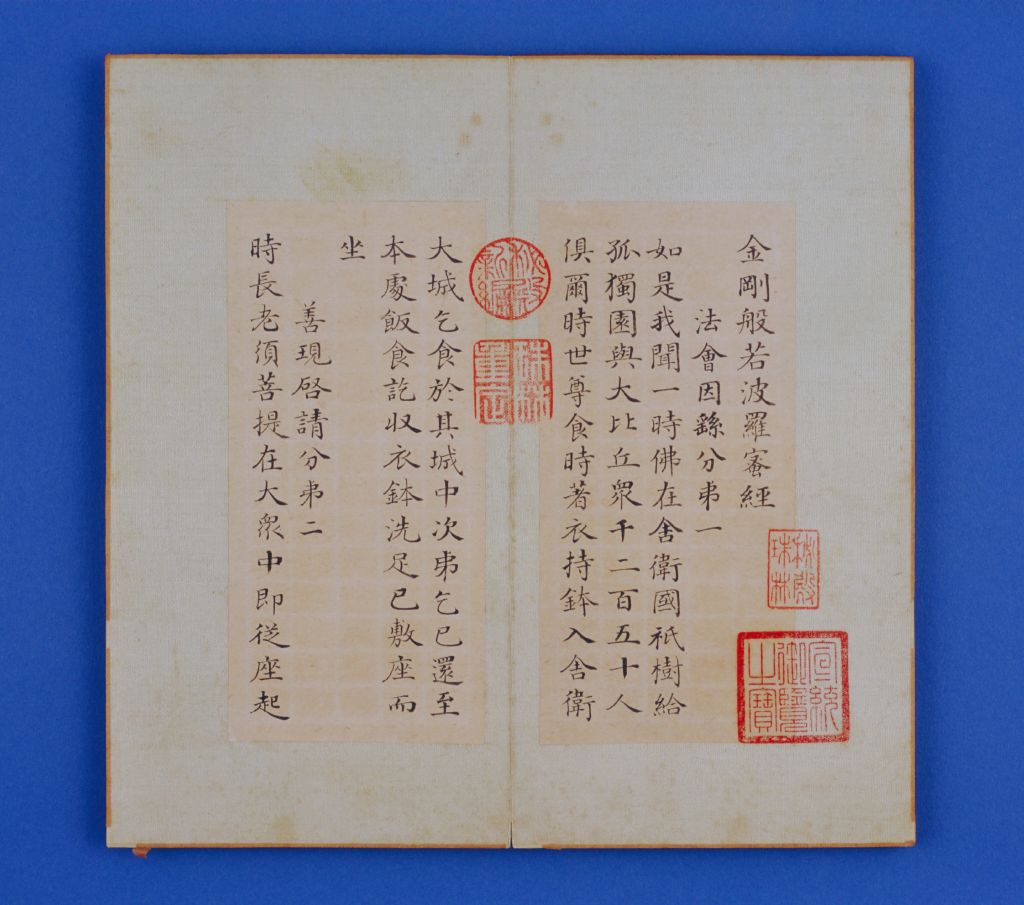 金剛般若波羅蜜經
法會因繇分弟一
如是我聞一時佛在舍衛國祇樹給
孤獨園與大比丘眾千二百五十人
俱爾時世尊食時著衣持鉢入舍衛
秘殿珠林
宣統御覽之寶
秘殿新編
珠林重定
大城乞食於其城中次弟乞已還至
本處飯食訖収衣鉢洗足已敷座而
坐
善現啓請分弟二
時長老須菩提在大眾中即從座起